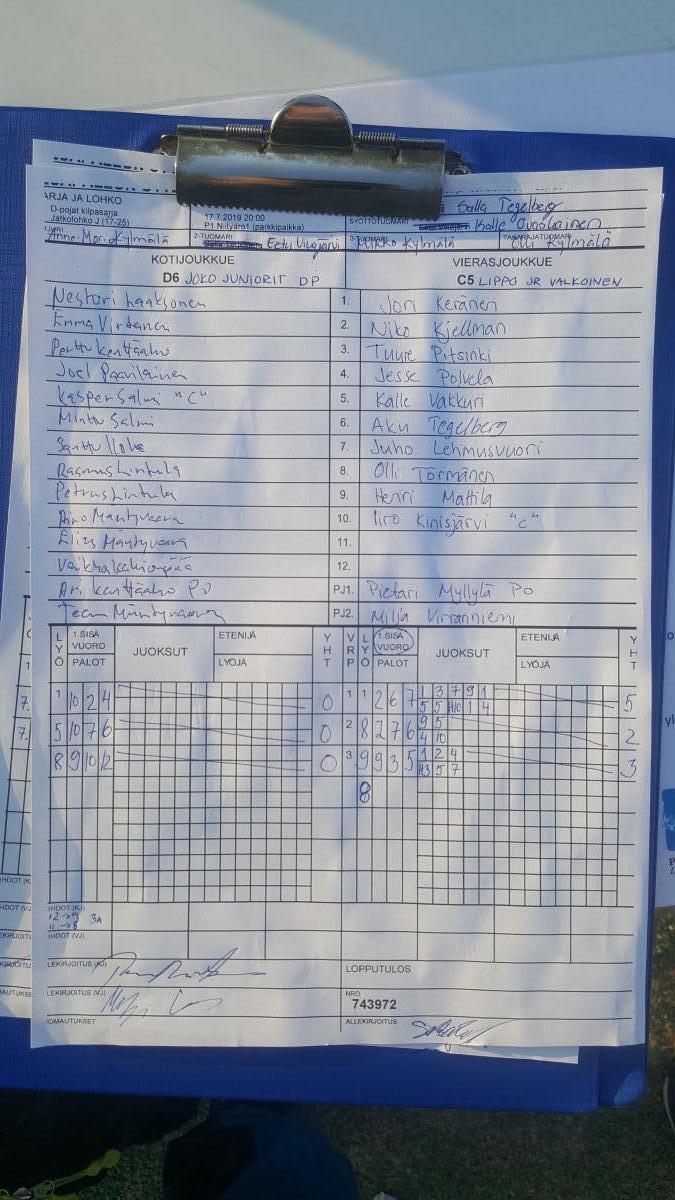 ARJA JA LOHKO
D-pojat kilpasarja
Jatkolohko J (17-25)
17.7.2019 20:00
P1 Niityaro1 (parkkipaikka)
Salla Tegelberg
SYÖTTÖTUOMARI Kalle Ovaskainen
Anne-Mari Kylmälä
2-TUOMARI Eetu Vikajärvi
3-TUOMARI Mikko Kylmälä
TAKARAJATUOMARI Olli Kylmälä
KOTIJOUKKUE VIERASJOUKKUE
D6 JOKO JUNIORIT DP C5 LIPPO JR VALKOINEN
Nestori Laaksonen 1. Joni Keränen
Emma Virtanen 2. Niko Kjellman
Perttu Kenttäaho 3. Tuure Pitsinki
Joel Paavilainen 4. Jesse Polvela
Kasper Salmi "C" 5. Kalle Vakkuri
Minttu Salmi 6. Aku Tegelberg
Santtu 7. Juho Lehmusvuori
Rasmus Lintula 8. Olli Törmänen
Petrus Lintula 9. Henri Mattila
Aino Mäntyvaara 10. Iiro Kinisjärvi "C"
Elias Mäntyvaara 11.
12.
Ari Kenttäaho PO PJ1. Pietari Myllylä PO
Mäntyvaara PJ2. Milja Virranniemi
LYÖ 1.SISÄ VUORO PALOT JUOKSUT ETENIJÄ LYÖJÄ YHT VRP LYÖ 1.SISÄ VUORO PALOT JUOKSUT ETENIJÄ LYÖJÄ YHT
1 10 2 4 0 1 1 2 6 7 1 3 7 9 1 5
5 5 H10 1 4
5 10 7 6 0 2 8 2 7 6 9 5 2
4 10
8 9 10 12 0 3 9 9 3 5 1 2 4 3
H3 5 7
8
IHDOT (KJ)
12→9 3A
11→8
IHDOT (VJ)
LEKIRJOITUS (KJ)
LOPPUTULOS
LEKIRJOITUS (VJ)
NRO
743972
OMAUTUKSET
ALLEKIRJOITUS